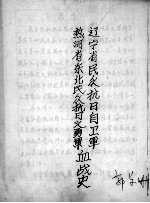 辽宁省民众抗日自卫军
热河省东北民众抗日义勇军血战史